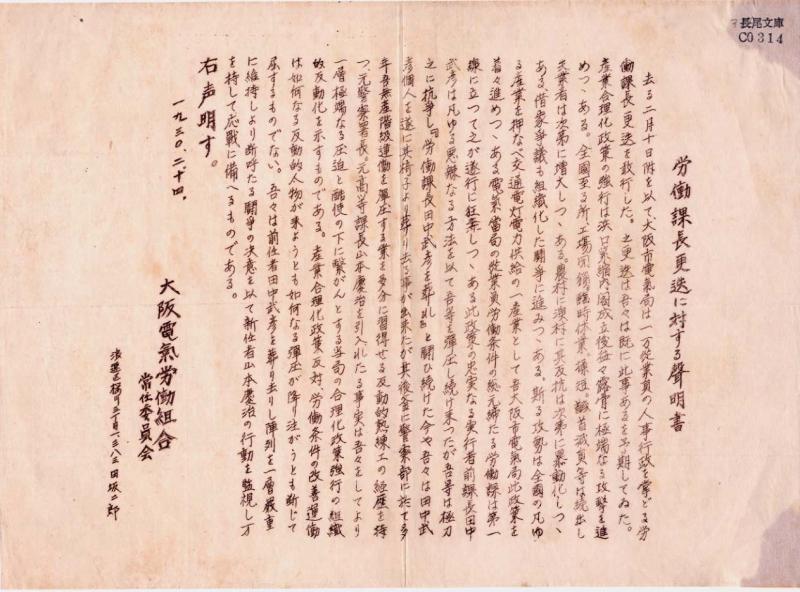 長尾文庫
C0314
労働課長更迭に対する聲明書
去る二月十日附を以て大阪市電氣局は一万従業員の人事行政を掌どる労
働課長の更迭を敢行した。之更迭は吾々は既に此事あるを予期してゐた。
産業合理化政策の強行は浜口緊縮内閣成立後益々露骨に極端なる攻撃を進
めつゝある。全國至る所工場閉鎖臨時休業、操短、馘首減員等は続出し
失業者は次第に増大しつゝある。農村に漁村に其反抗は次第に暴動化しつゝ
ある、借家爭議も組織化した闘爭に進みつゝある。斯る攻勢は全國の凡ゆ
る産業を押なべ交通電灯電力供給の一産業として吾大阪市電氣局此政策を
着々進めつゝある電氣當局の従業員労働条件の総元締たる労働課は第一
線に立つて之が遂行に狂奔しつゝある此政策の忠実なる実行者前課長田中
武彦は凡ゆる悪辣なる方法を以て吾等を彈圧し続け来つたが吾等は極力
之に抗爭し『労働課長田中武彦を葬れ』と闘ひ続けた今や吾々は田中武
彦個人を遂に其椅子より葬り去る事が出来たが其後釜に警察部に於て多
年吾無産階級運働を彈圧する業を多分に習得せる反動的熟練工の経歴を持
つ、元警察署長。元高等課長山本慶治を引入れたる事実は吾々をしてより
一層極端なる圧迫と酷使の下に繋がんとする当局の合理化政策強行の組織
的反動化を示すものである。産業合理化政策反対、労働条件の改善運働
は如何なる反動的人物が来ようとも如何なる彈圧が降り注がうとも断じて
屈するものでない。吾々は前任者田中武彦を葬り去りし陣列を一層嚴重
に維持しより断呼たる闘爭の決意を以て新任者山本慶治の行動を監視し万
を持して応戰に備へるものである。
右声明す。
一九三〇、二、十四、
大阪電氣労働組合
常任委員会
浪速區桜川三丁目一三八三田坂二郎